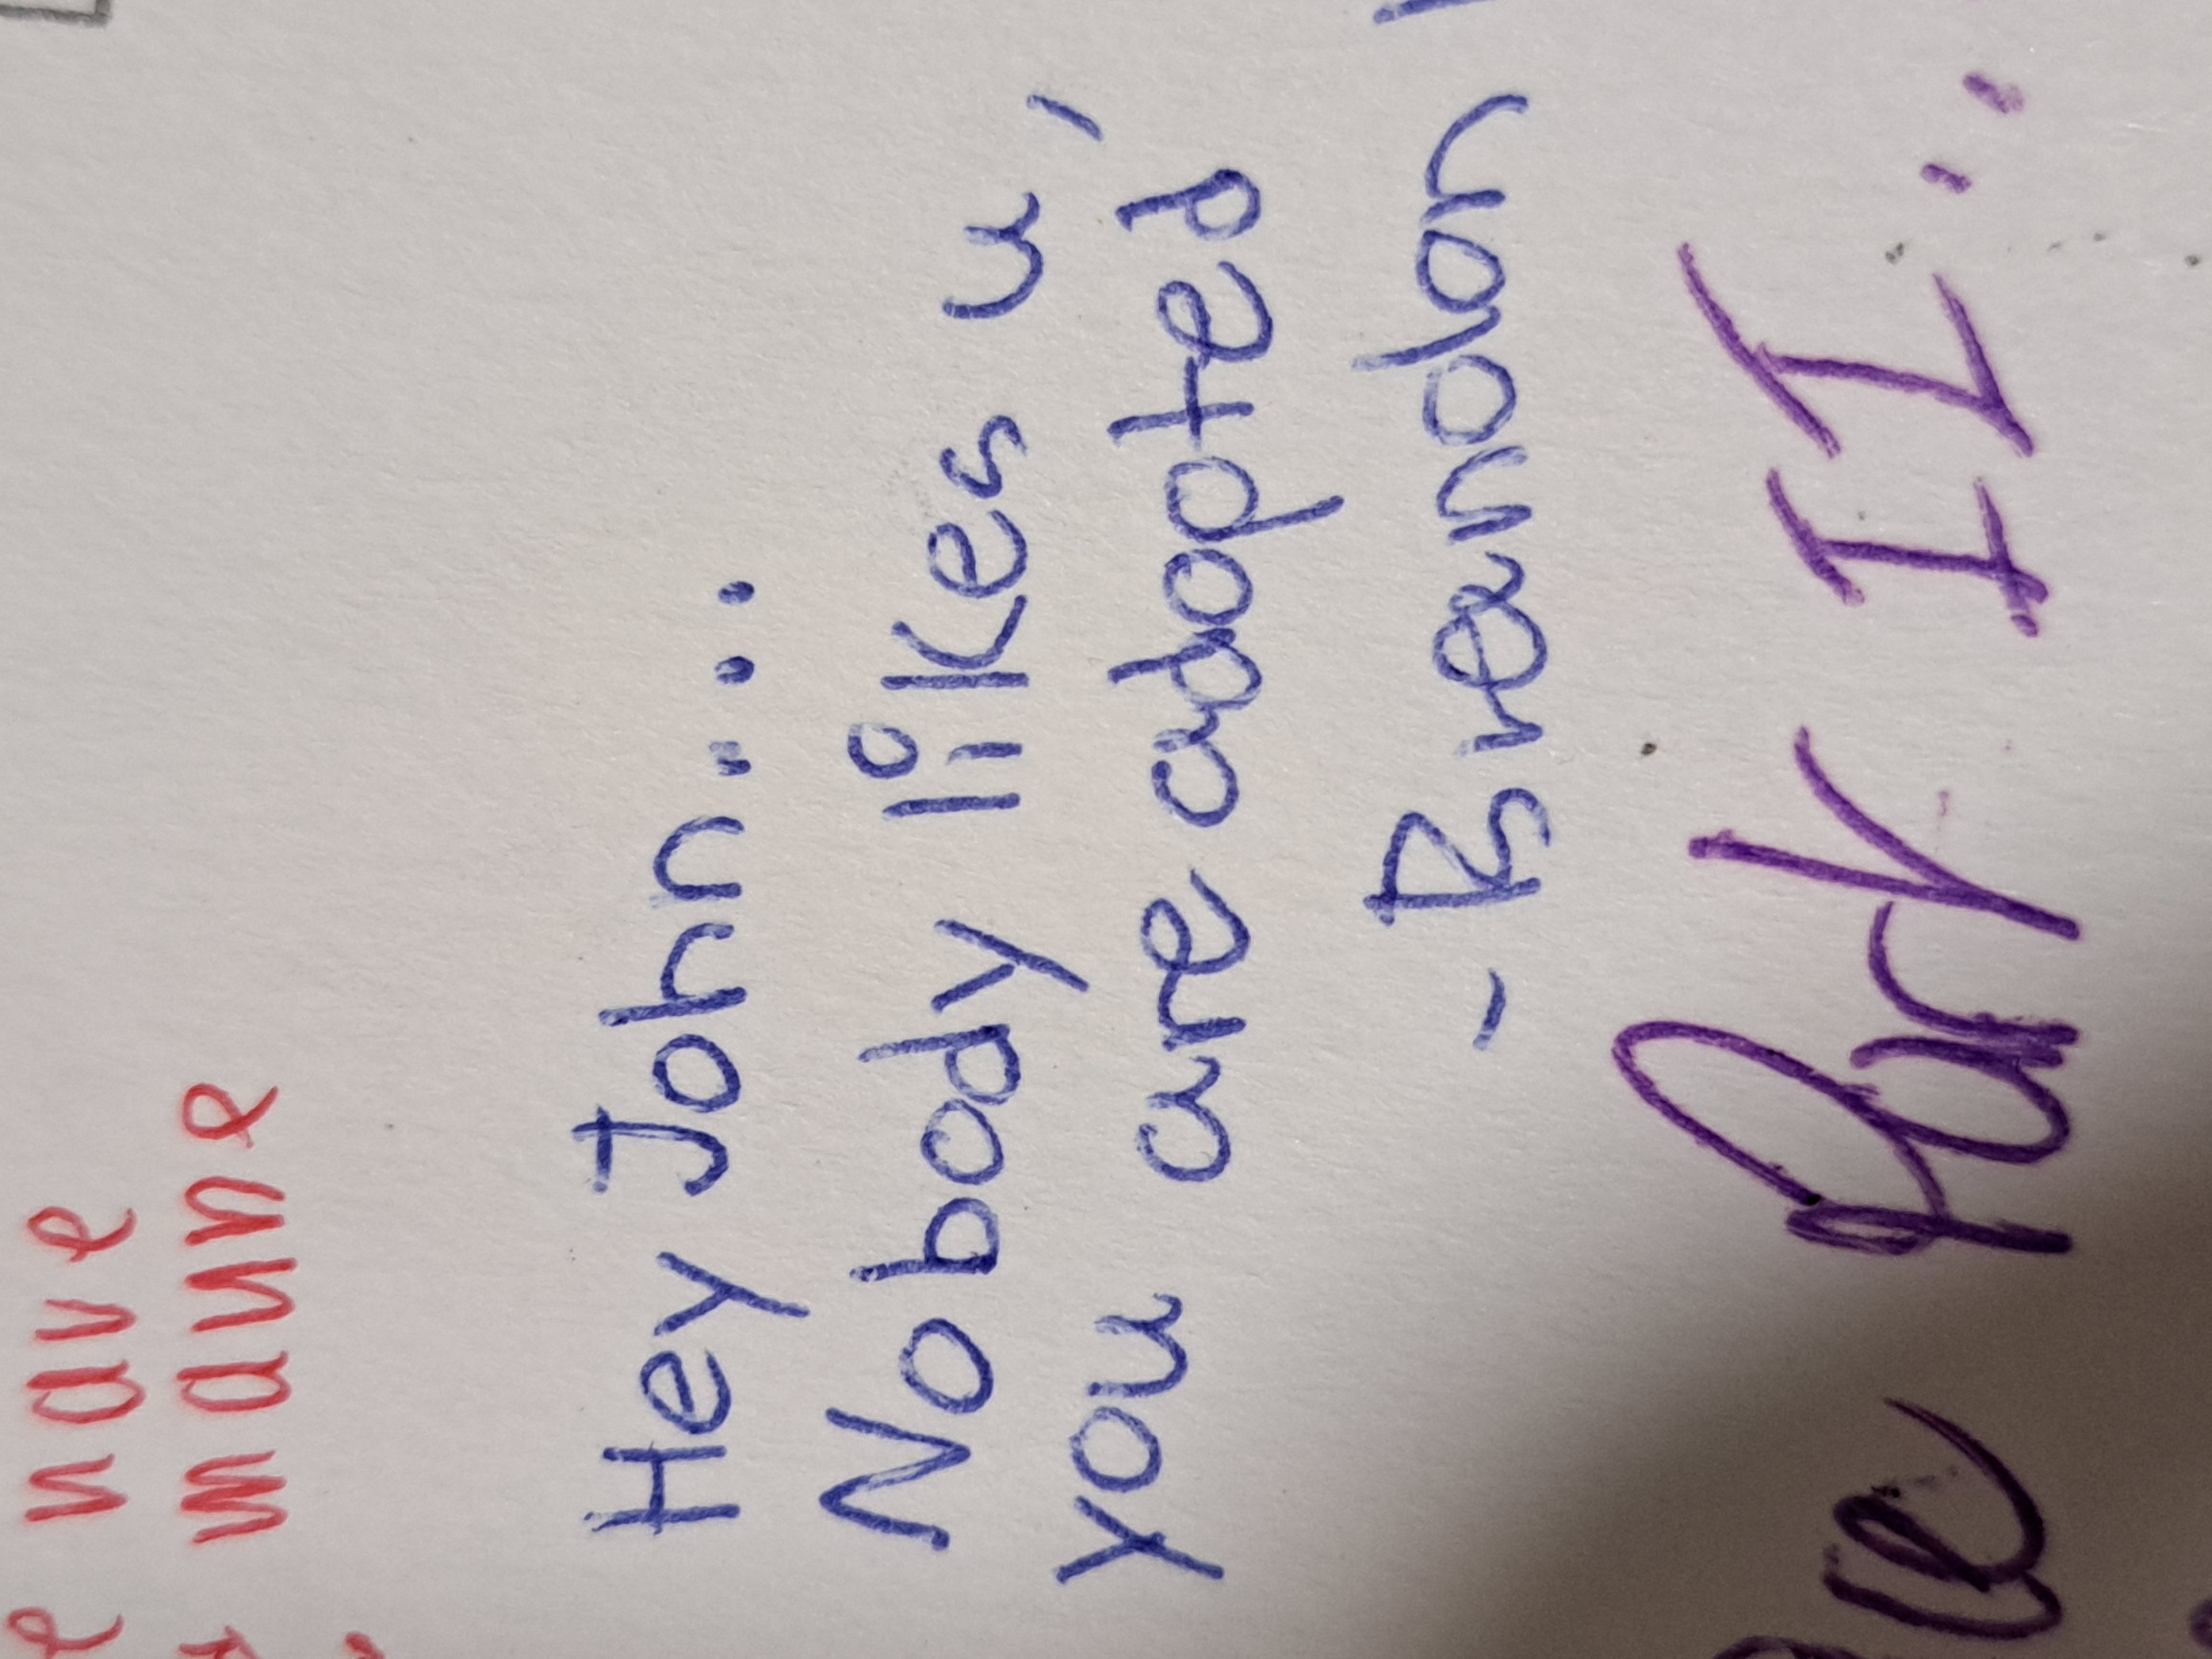 e have
maybe
Hey John...
Nobody likes u,
you are adopted
-Brandon
Part II..